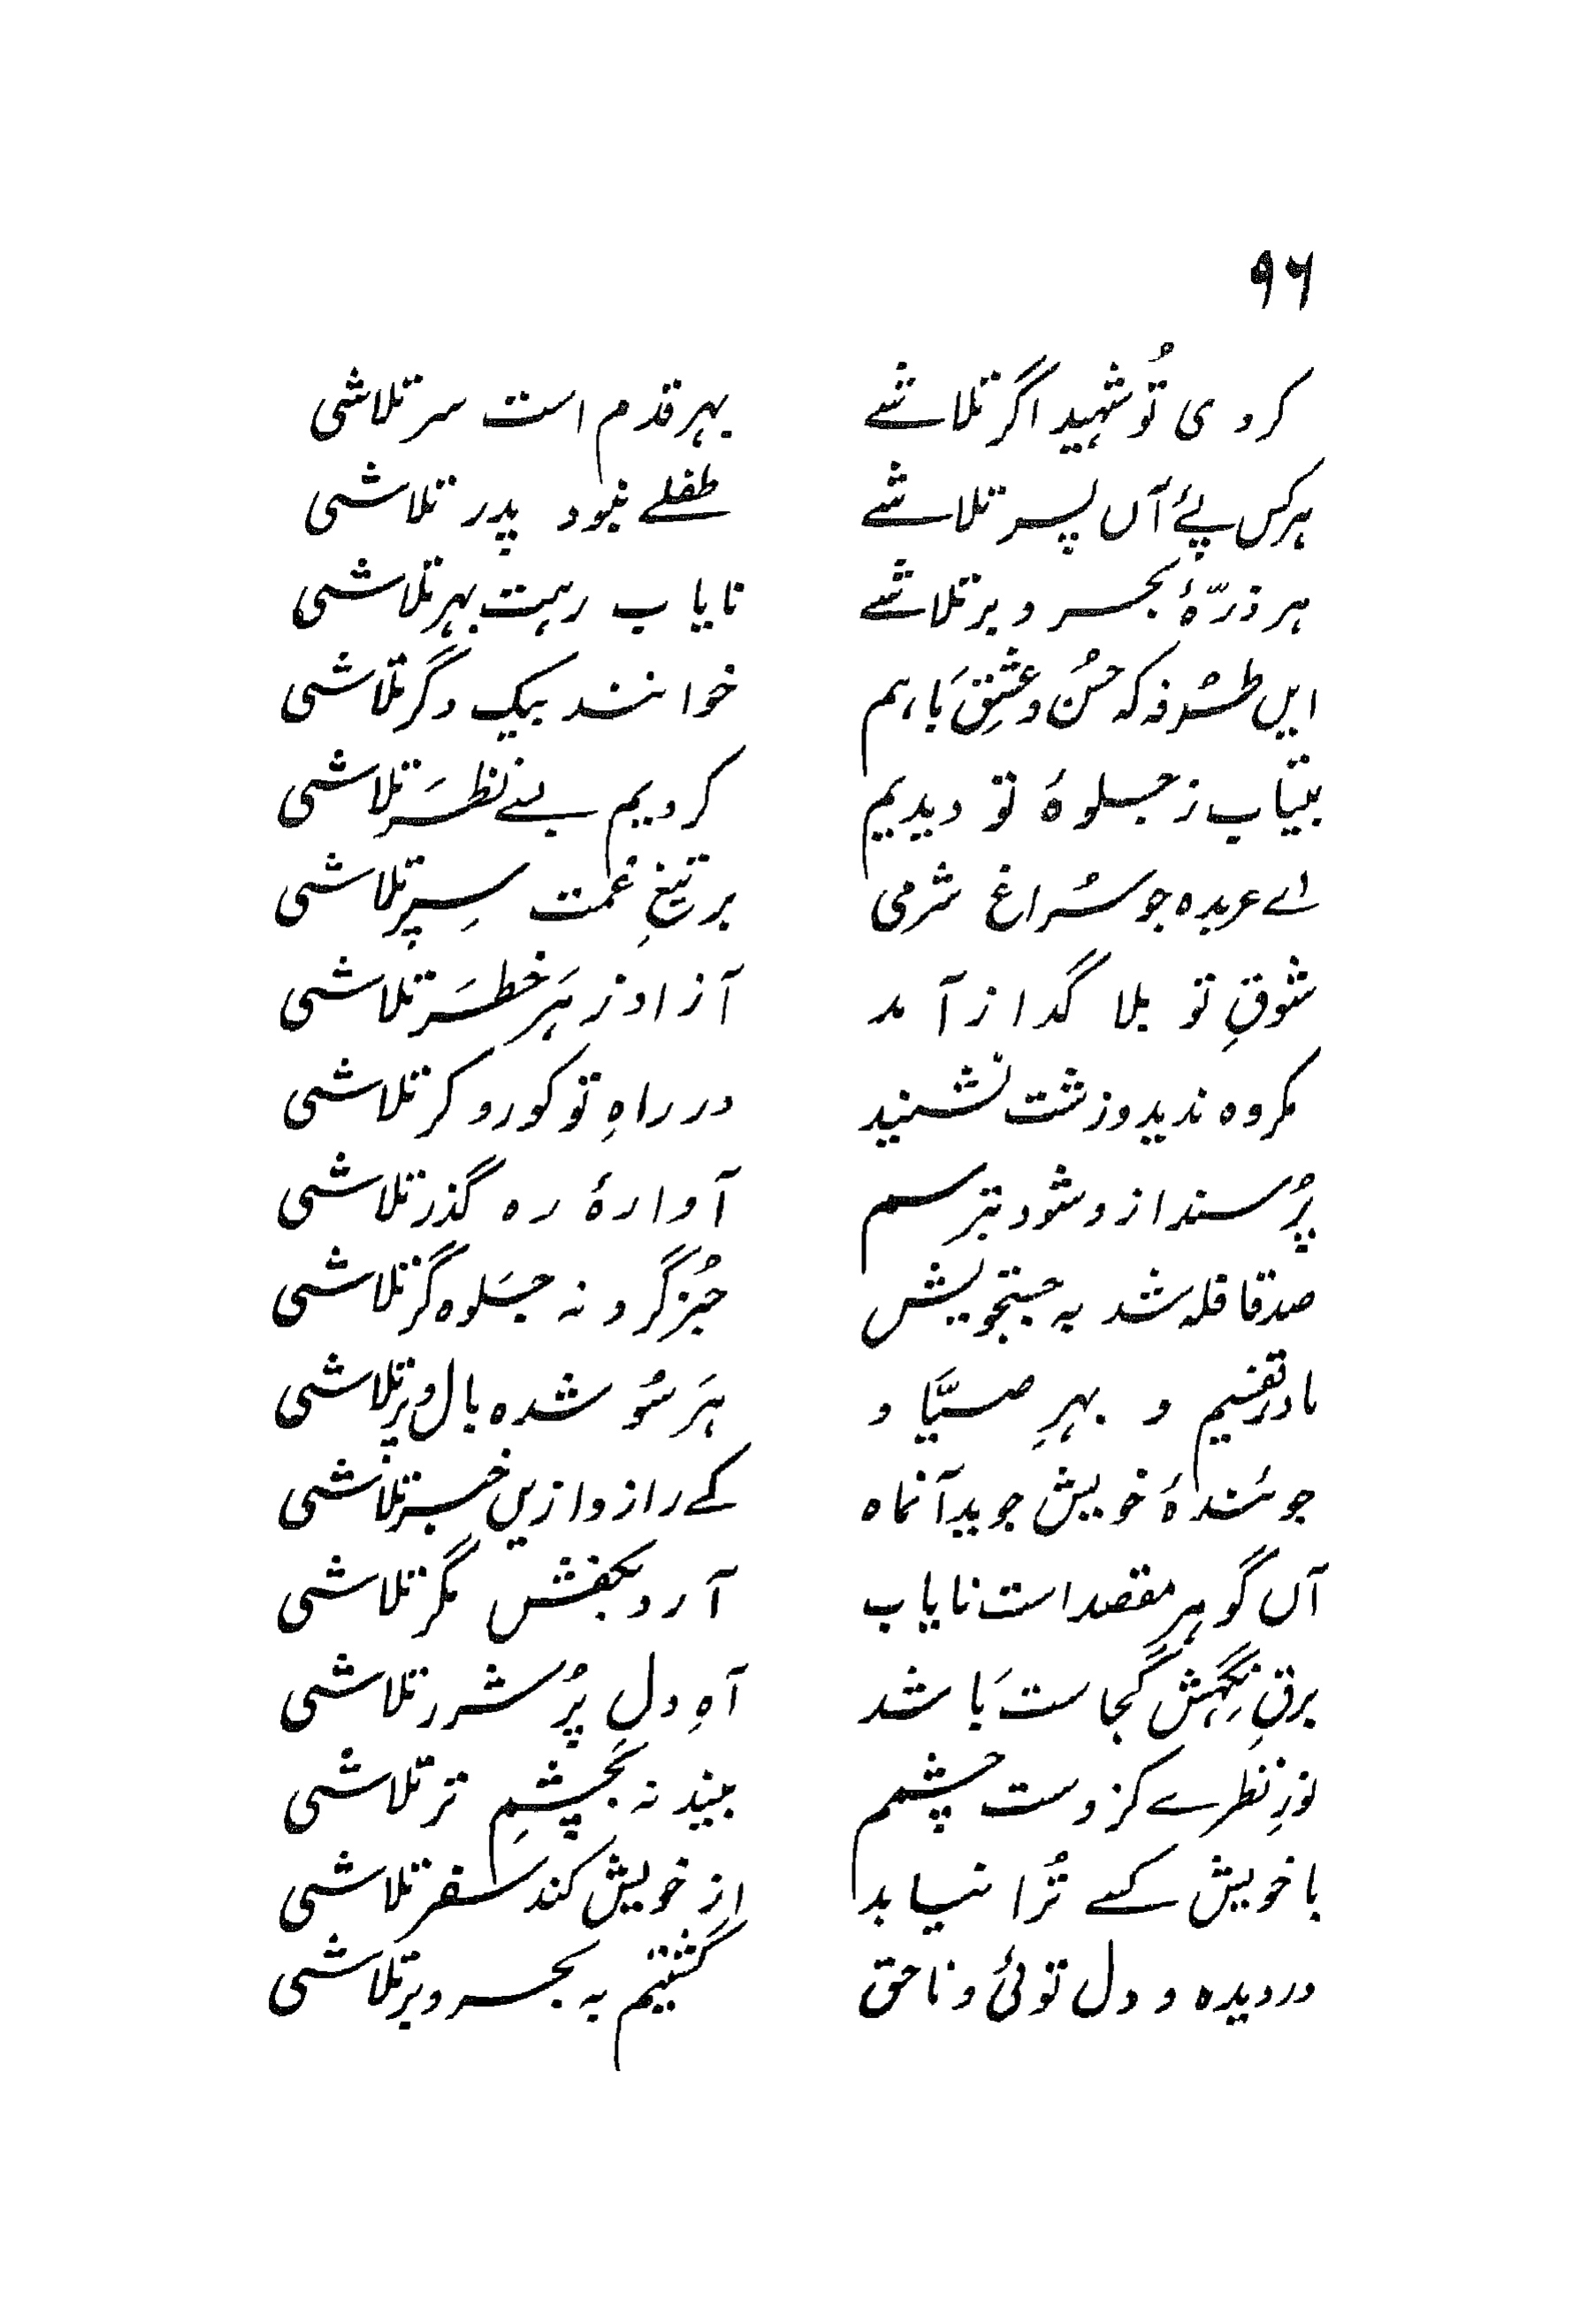 ۹۶
کردی تُو شہید اگر تلاشے بہر قدم است سر تلاشی
ہر کس پئے آں پسر تلاشے طفلے نبود پدر تلاشی
ہر ذرّۂ بحر و بر تلاشے نایاب رہت بہر تلاشی
ایں طُرفہ کہ حسُن و عشِق بَاہم خوانند بیک دگر تلاشی
بیتاب ز جلوۂ تو دیدیم کردیم بسے نظَر تلاشی
اے عربدہ جو سُراغ شرمی بر تیغِ غمت سِپر تلاشی
شوقِ تو بلا گداز آمد آزاد ز ہَر خطَر تلاشی
مکروہ ندید و زشت نشنید در راہِ تو کور و کر تلاشی
پُرسند از و شود تبرسم آوارۂ رہ گذر تلاشی
صد قافلہ شد بہ جستجویش جُز گرد نہ جَلوہ گر تلاشی
ما در قفسیم و بہرِ صیَّاد ہَر سُو شدہ بال و پر تلاشی
جوئندۂ خویش جوید آنماہ کے راز و ازیں خبر تلاشی
آں گوہرِ مقصد است نایاب آرد بکفش مگر تلاشی
برقِ نِگہش کُجاست بَاشد آہِ دلِ پُر شرر تلاشی
نورِ نظرے کزوست چشمم بیند نہ بَچشمِ تر تلاشی
با خویش کسے تُرا نیابد از خویش کند سفر تلاشی
در دیدہ و دل توئی و ناحق گشتیم بہ بحر و بر تلاشی